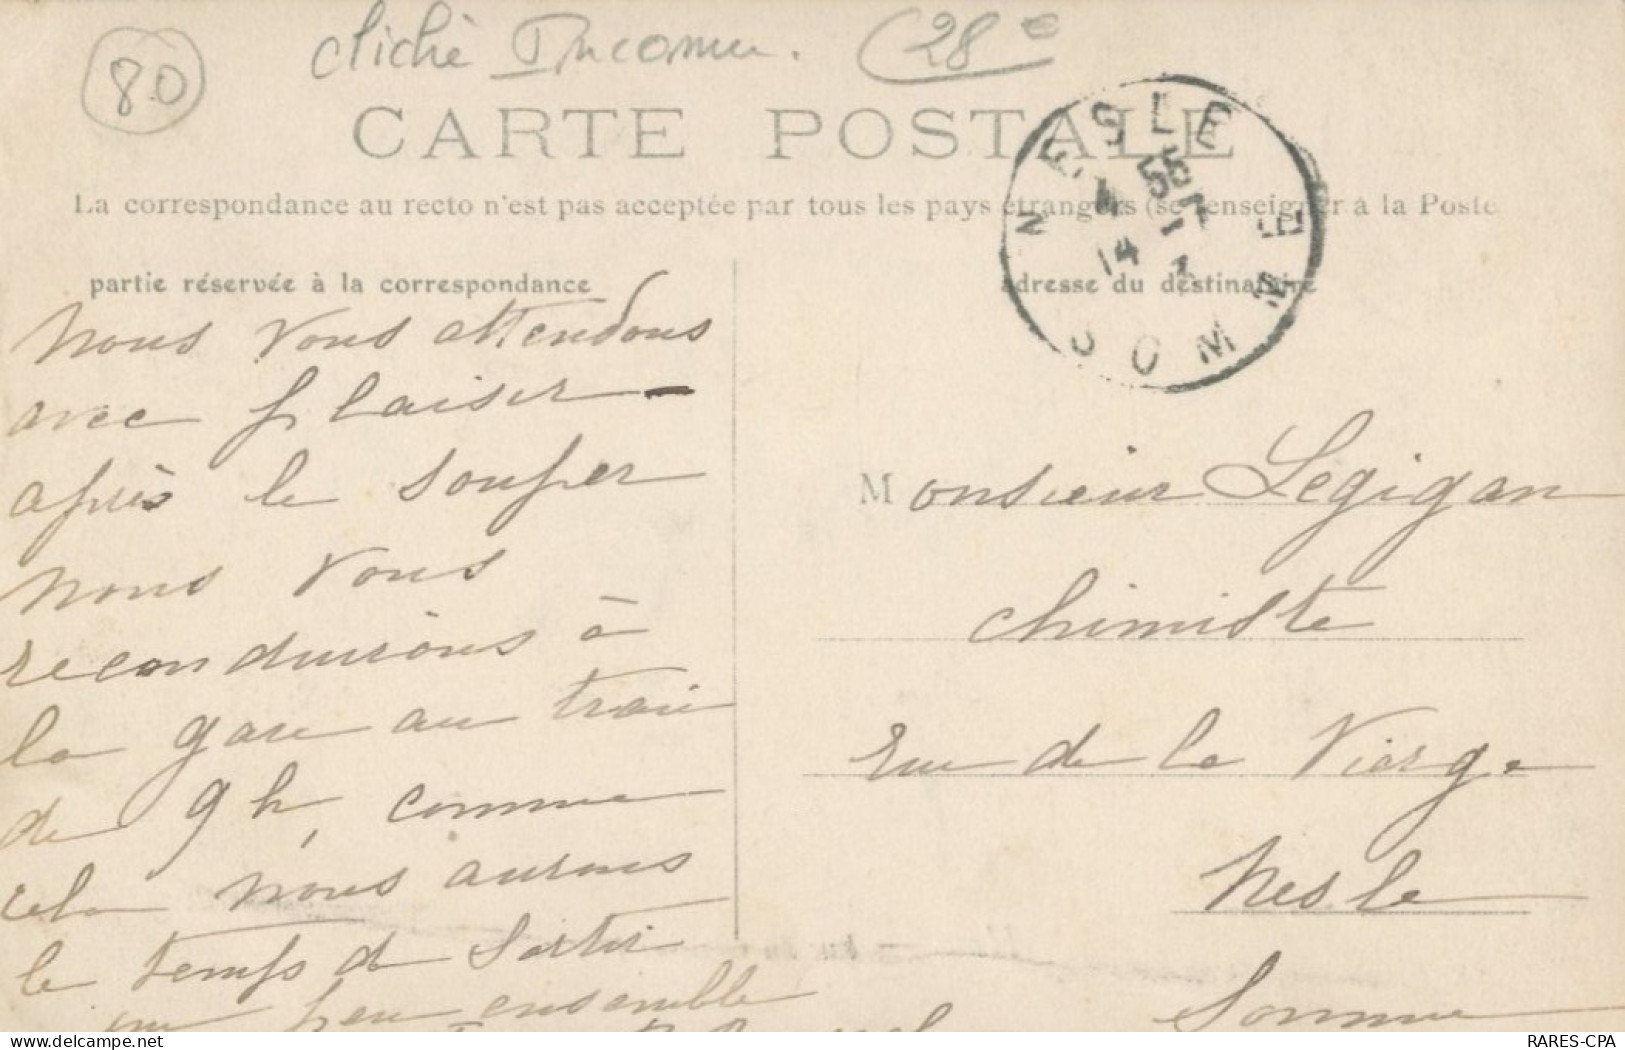 80
cliché Inconnu. 28€
CARTE POSTALE
La correspondance au recto n'est pas acceptée par tous les pays étrangers (se renseigner à la Poste
partie réservée à la correspondance
adresse du destinataire
NESLE
SOMME
Nous vous attendons
avec plaisir
après le souper
nous vous
reconduirons à
la gare au train
de 9h, comme
cela nous aurons
le temps de sortir
un peu ensemble
Monsieur Legigan
chimiste
rue de la Vierge
Nesle
Somme
RARES-CPA